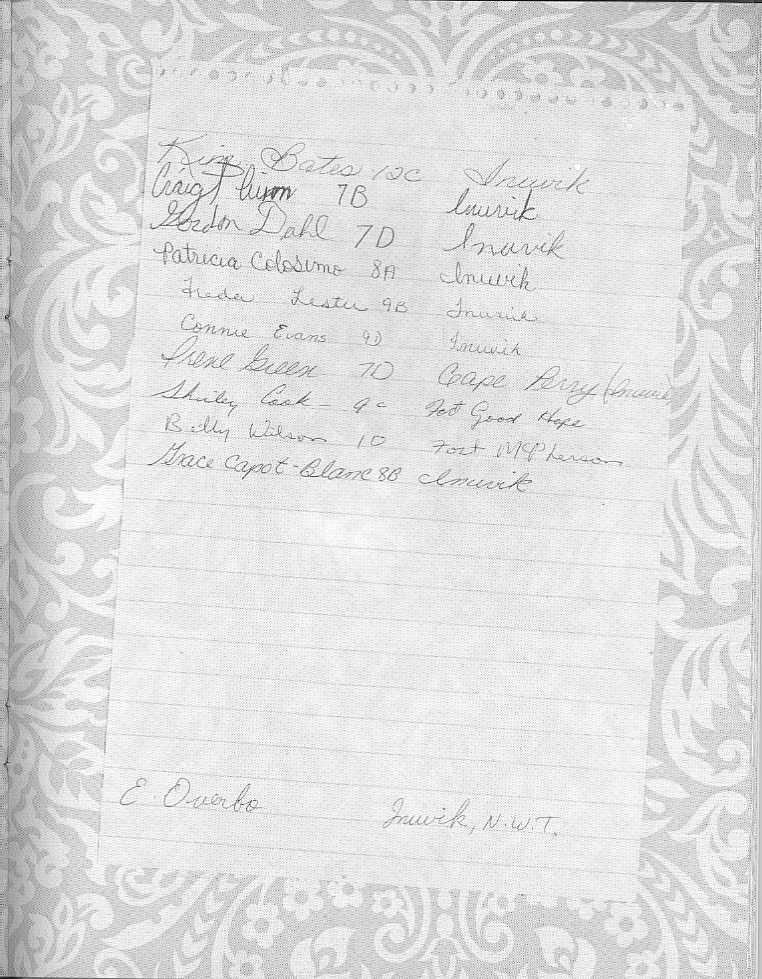 Kim Bates 12C Inuvik
Craig 7B Inuvik
Gordon Dahl 7D Inuvik
Patricia Colosimo 8A Inuvik
Freda Lester 9B Inuvik
Connie Evans 9D Inuvik
Irene Green 7D Cape Perry (Inuvik)
Shirley Cook - 9C Fort Good Hope
Billy Wilson 10 Fort McPherson
Grace Capot-Blanc 8B Inuvik
E. Overbo Inuvik, N.W.T.